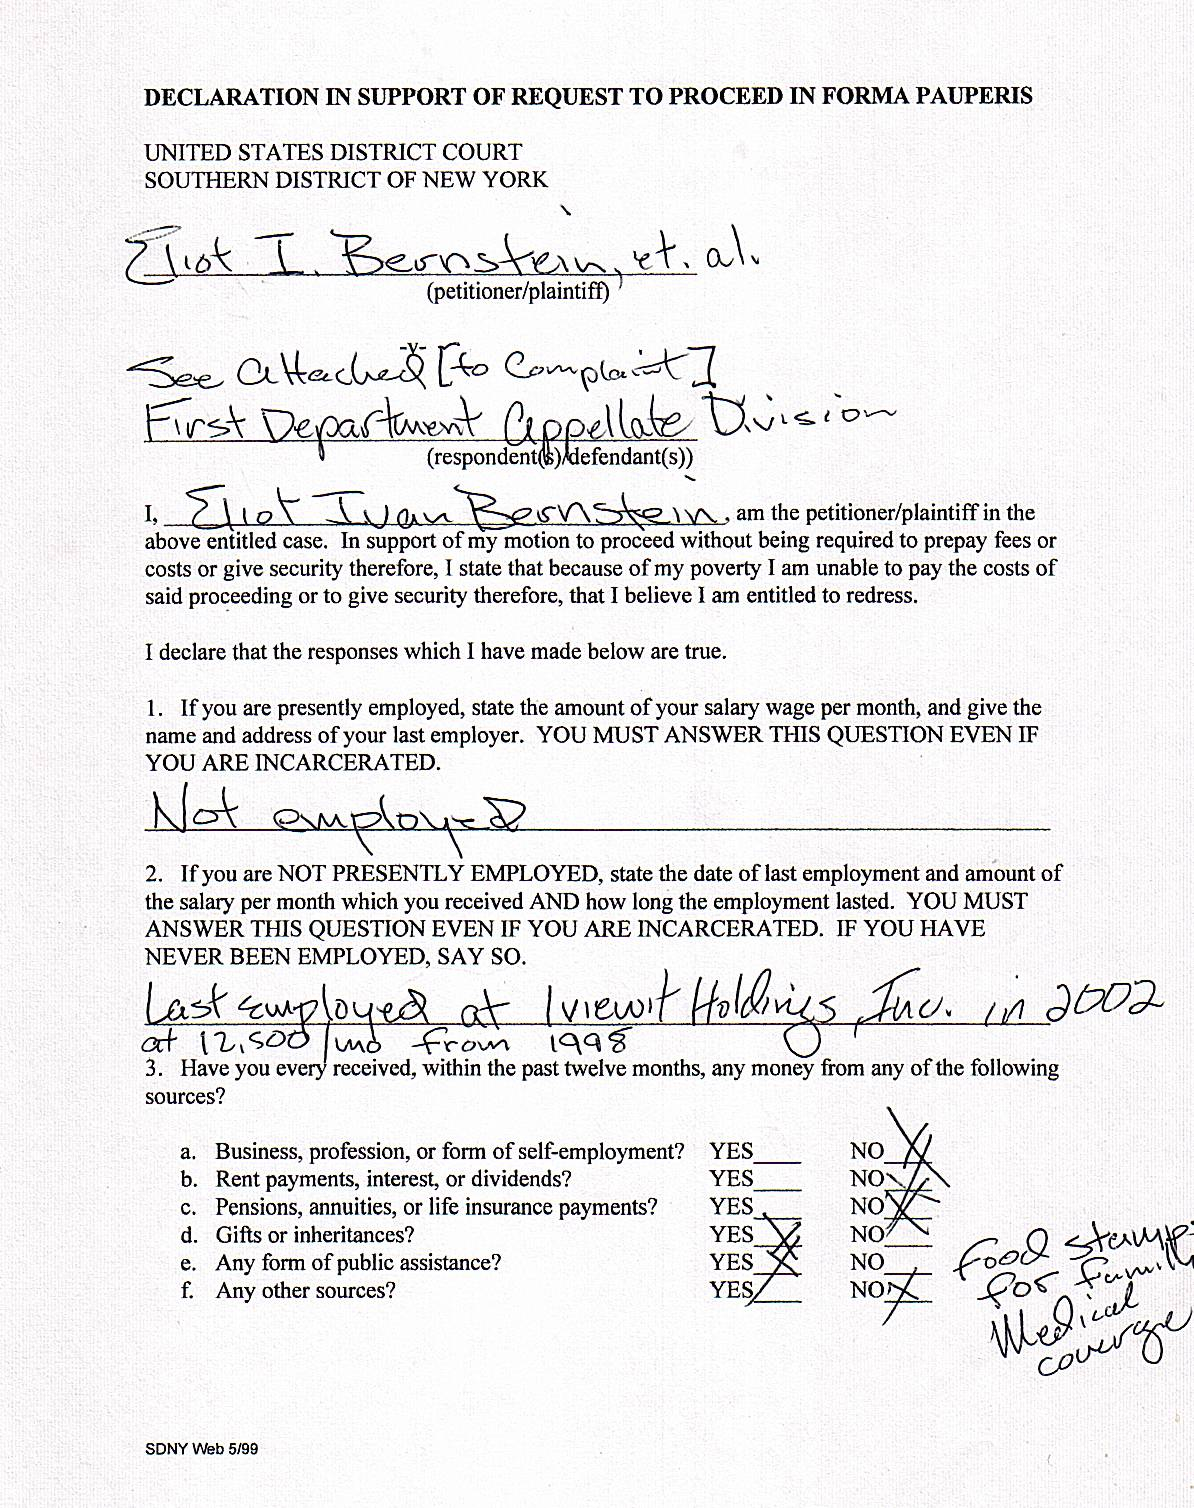 DECLARATION IN SUPPORT OF REQUEST TO PROCEED IN FORMA PAUPERIS
UNITED STATES DISTRICT COURT
SOUTHERN DISTRICT OF NEW YORK
Eliot I. Bernstein, et. al.
(petitioner/plaintiff)
-v-
See Attached [to Complaint]
First Department Appellate Division
(respondent(s)/defendant(s))
I, Eliot Ivan Bernstein, am the petitioner/plaintiff in the
above entitled case. In support of my motion to proceed without being required to prepay fees or
costs or give security therefore, I state that because of my poverty I am unable to pay the costs of
said proceeding or to give security therefore, that I believe I am entitled to redress.
I declare that the responses which I have made below are true.
1. If you are presently employed, state the amount of your salary wage per month, and give the
name and address of your last employer. YOU MUST ANSWER THIS QUESTION EVEN IF
YOU ARE INCARCERATED.
Not employed
2. If you are NOT PRESENTLY EMPLOYED, state the date of last employment and amount of
the salary per month which you received AND how long the employment lasted. YOU MUST
ANSWER THIS QUESTION EVEN IF YOU ARE INCARCERATED. IF YOU HAVE
NEVER BEEN EMPLOYED, SAY SO.
Last employed at Iviewit Holdings, Inc. in 2002
at 12,500/mo from 1998
3. Have you every received, within the past twelve months, any money from any of the following
sources?
a. Business, profession, or form of self-employment? YES____ NO X
b. Rent payments, interest, or dividends? YES____ NO X
c. Pensions, annuities, or life insurance payments? YES____ NO X
d. Gifts or inheritances? YES X NO____
e. Any form of public assistance? YES X NO____
f. Any other sources? YES____ NO X
food stamps
for family
Medical
coverage
SDNY Web 5/99